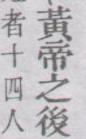 黃帝之後
者十四人